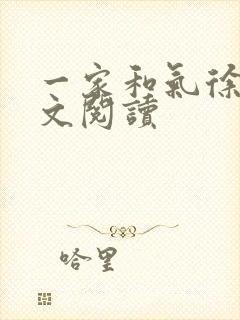 一家和氣徐
文閱讀
哈里